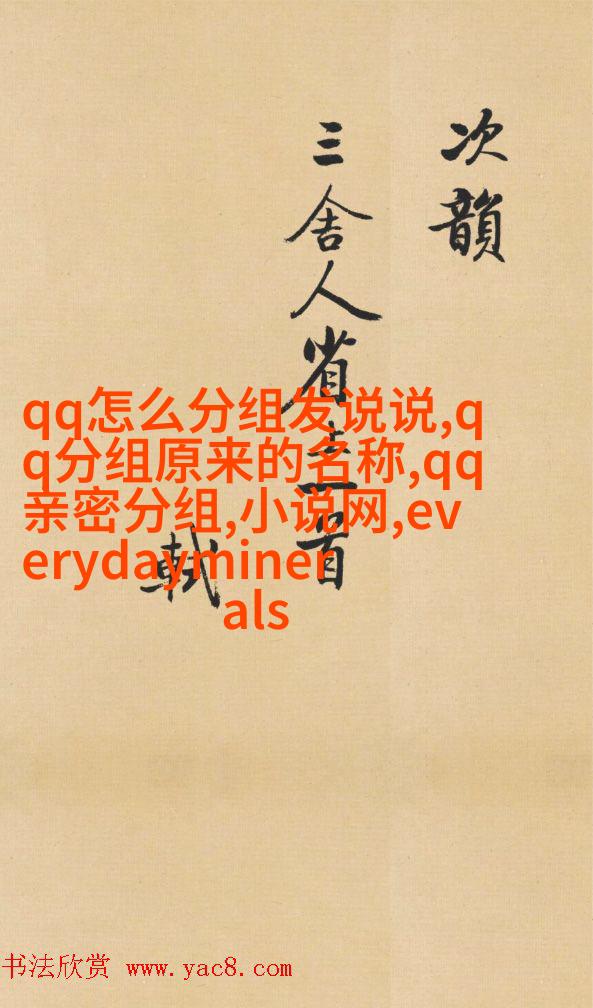 次韻
三舍人省上一首
軾
qq怎么分组发说说,q
q分组原来的名称,qq
亲密分组,小说网,ev
erydayminer
als
书法欣赏 www.yac8.com